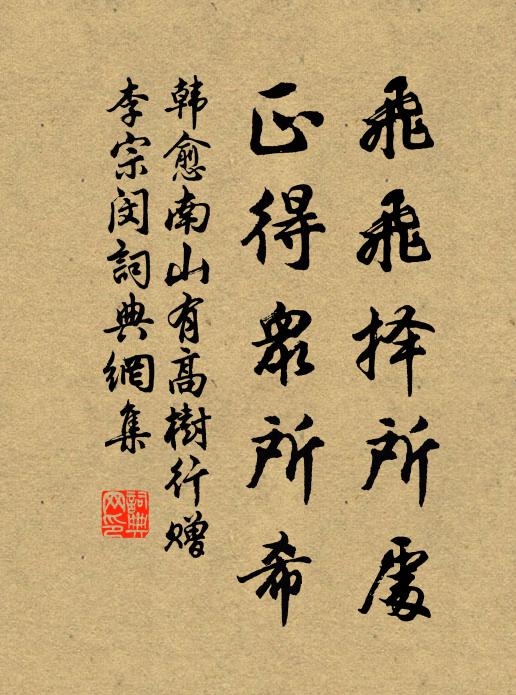 飛飛择所處
正得眾所希
韩愈南山有高樹行赠
李宗闵詞典網集
詞典网印